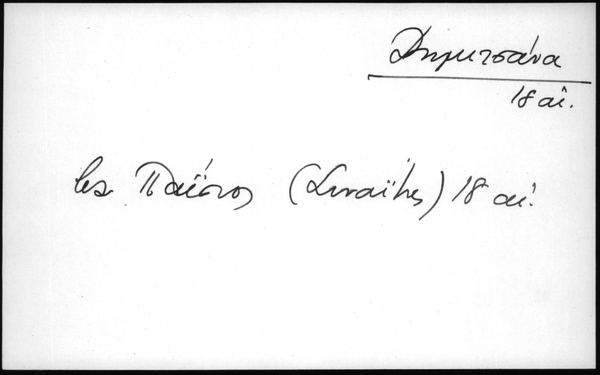 Δημητσάνα
18 αἰ.
Παΐσιος (Σιναΐτης) 18 αἰ.